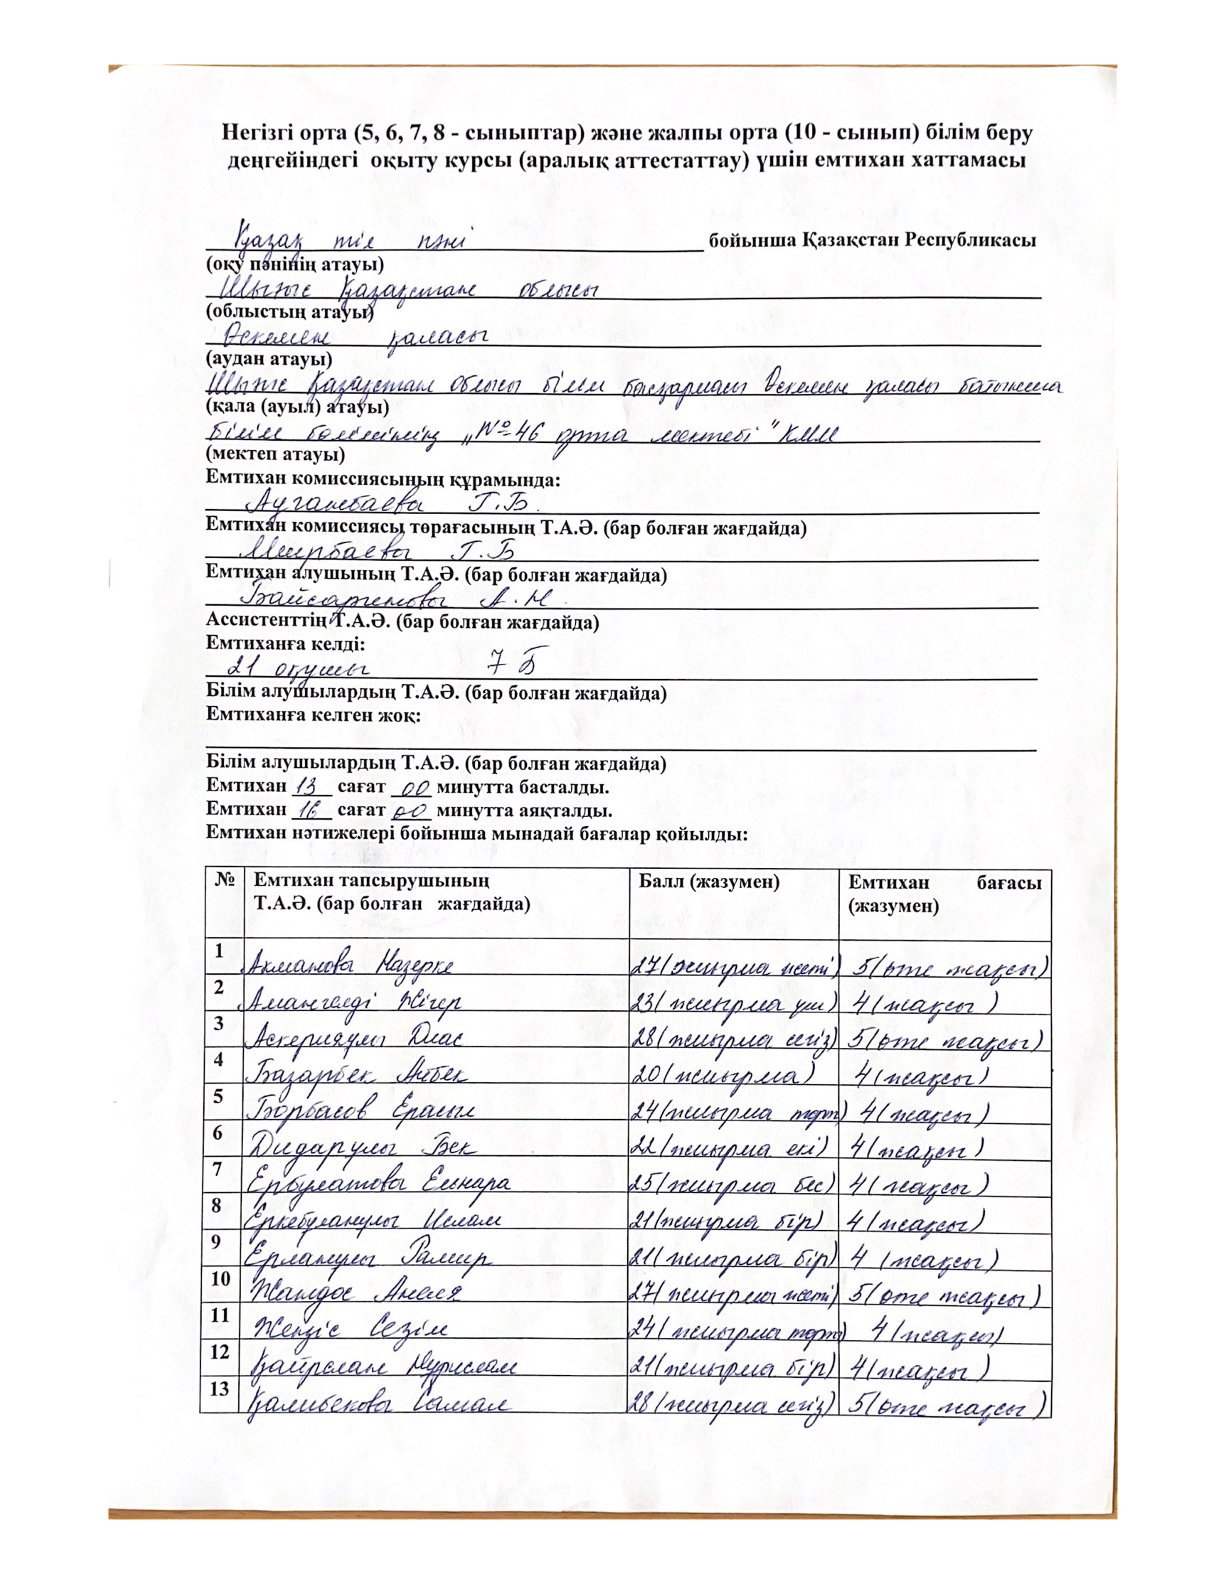 Негізгі орта (5, 6, 7, 8 - сыныптар) және жалпы орта (10 - сынып) білім беру
деңгейіндегі оқыту курсы (аралық аттестаттау) үшін емтихан хаттамасы
Қазақ тіл пәні бойынша Қазақстан Республикасы
(оқу пәнінің атауы)
Шығыс Қазақстан облысы
(облыстың атауы)
Өскемен қаласы
(аудан атауы)
Шығыс Қазақстан облысы білім басқармасы Өскемен қаласы бойынша
(қала (ауыл) атауы)
білім бөлімінің „№46 орта мектебі" КММ
(мектеп атауы)
Емтихан комиссиясының құрамында:
Ауганбаева Г.Б.
Емтихан комиссиясы төрағасының Т.А.Ә. (бар болған жағдайда)
Меирбаева Г.Б
Емтихан алушының Т.А.Ә. (бар болған жағдайда)
Байсаркенова А.Н.
Ассистенттің Т.А.Ә. (бар болған жағдайда)
Емтиханға келді:
21 оқушы 7 Б
Білім алушылардың Т.А.Ә. (бар болған жағдайда)
Емтиханға келген жоқ:
Білім алушылардың Т.А.Ә. (бар болған жағдайда)
Емтихан 13 сағат 00 минутта басталды.
Емтихан 16 сағат 00 минутта аяқталды.
Емтихан нәтижелері бойынша мынадай бағалар қойылды:
№ Емтихан тапсырушының Балл (жазумен) Емтихан бағасы
Т.А.Ә. (бар болған жағдайда) (жазумен)
1 Акманова Назерке 27(жиырма жеті) 5(өте жақсы)
2 Амангелді Жігер 23(жиырма үш) 4(жақсы)
3 Аскерияұлы Диас 28(жиырма сегіз) 5(өте жақсы)
4 Базарбек Айбек 20(жиырма) 4(жақсы)
5 Борбасов Ерасыл 24(жиырма төрт) 4(жақсы)
6 Дидарұлы Бек 22(жиырма екі) 4(жақсы)
7 Ербулатова Еңнара 25(жиырма бес) 4(жақсы)
8 Еркебуланұлы Ислам 21(жиырма бір) 4(жақсы)
9 Ерланұлы Рамир 21(жиырма бір) 4 (жақсы)
10 Жандос Анеля 27(жиырма жеті) 5(өте жақсы)
11 Жеңіс Сезім 24(жиырма төрт) 4(жақсы)
12 Қайрслан Нурислам 21(жиырма бір) 4(жақсы)
13 Қалибекова Самал 28(жиырма сегіз) 5(өте жақсы)